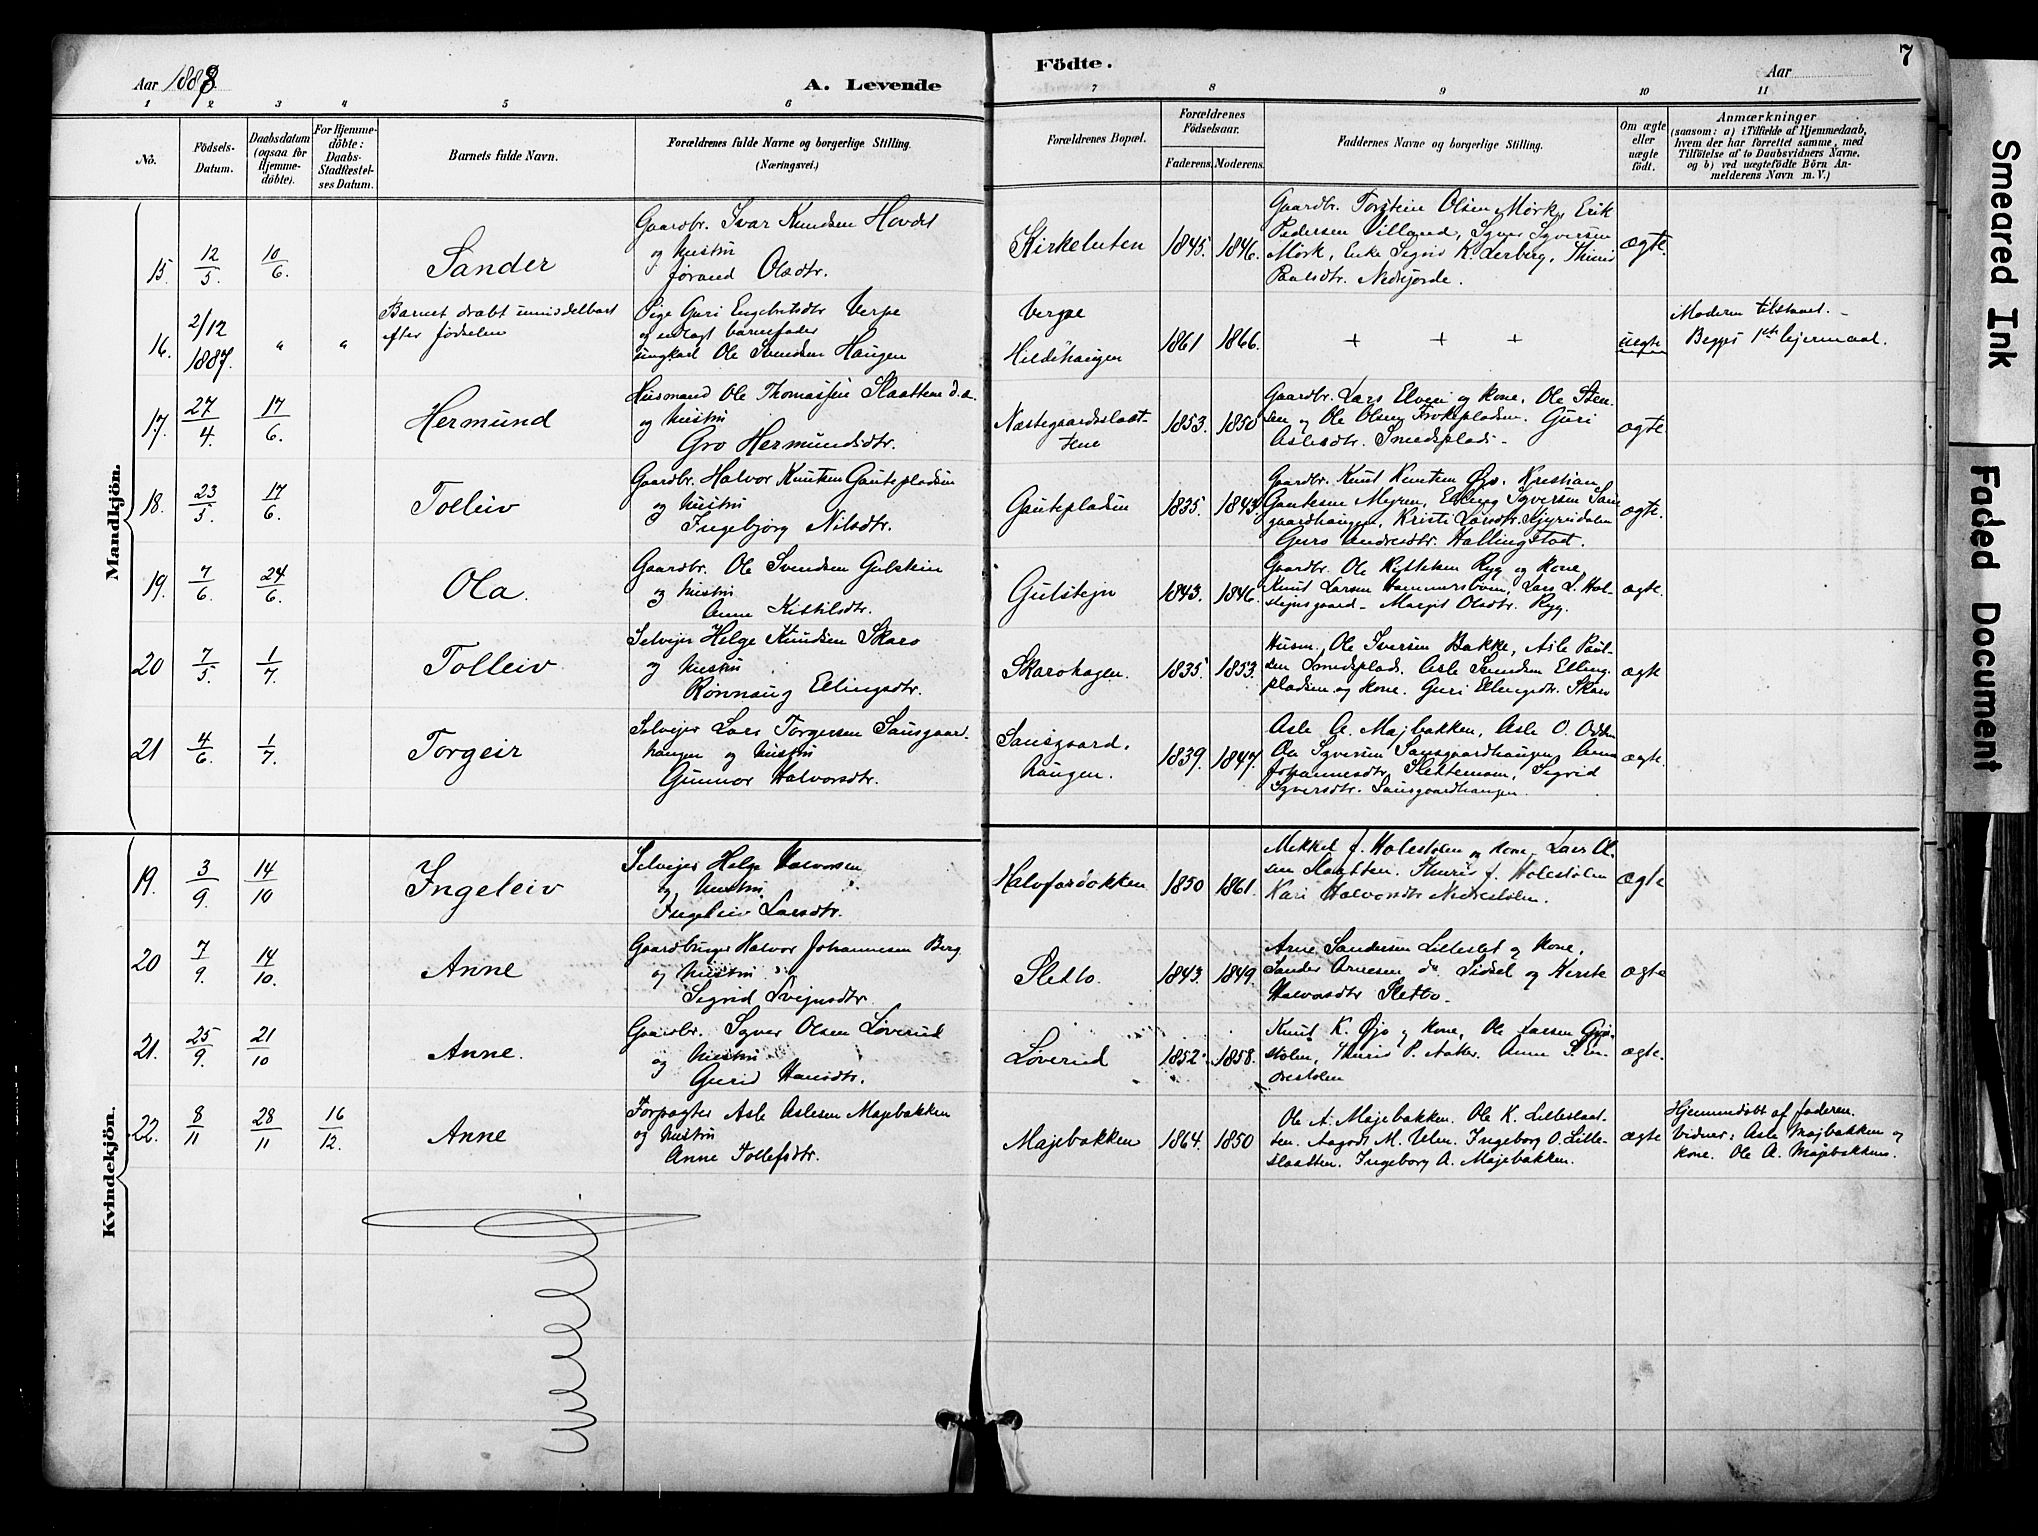 Aar 1888
A. Levende
Födte.
Aar
7
1 2 3 4 5 6 7 8 9 10 11
No.
Födsels-
Datum.
Daabsdatum
(ogsaa for
Hjemme-
döbte).
For Hjemme-
döbte:
Daabs-
Stadfæstel-
ses Datum.
Barnets fulde Navn.
Forældrenes fulde Navne og borgerlige Stilling.
(Næringsvei.)
Forældrenes Bopæl.
Forældrenes
Födselsaar.
Faderens. Moderens.
Faddernes Navne og borgerlige Stilling.
Om ægte
eller
uægte
födt.
Anmærkninger
(saasom: a) i Tilfælde af Hjemmedaab,
hvem der har forrettet samme, med
Tilföielse af to Daabsvidners Navne,
og b) ved uægtefödte Börn An-
melderens Navn m. V.)
Mandkjön.
15. 12/5. 10/6. Sander
Gaardbr. Ivar Knudsen Hovdet
og hustru
Jørand Olsdtr.
Kirkeluten 1845. 1846.
Gaardbr. Torstein Olsen Mørk, Erik
Pedersen Villand, Syver Syversen
Mørk, Enke Sigrid K. Lerberg, Thurid
Paulsdtr. Nedrejorde.
ægte.
16. 2/12 1887. " "
Barnet dræbt umiddelbart
efter fødselen
Pige Guri Engebretsdtr Verpe
og udlagt barnefader
ungkarl Ole Svendsen Haugen
Verpe
Hildehaugen 1861 1866. + + + uægte
Moderen tilstaaet. -
Begges 1ste lejermaal.
17. 27/4. 17/6. Hermund
Husmand Ole Thomassen Slaatten d.a.
og hustru
Gro Hermundsdtr.
Næstegaardsslaat-
tene 1853. 1858
Gaardbr. Lars Elven og kone, Ole Sten-
sen og Ole Olsen Frøkepladsen. Guri
Aslesdtr. Smedsplads.
ægte
18. 23/5. 17/6. Tolleiv
Gaardbr. Halvor Knutsen Gautepladsen
og hustru
Ingebjørg Nilsdtr.
Gautepladsen 1835. 1843.
Gaardbr. Knut Knutsen Øjo. Kristian
Gautesen Myren, Elling Syversen Sans-
gaardhaugen, Kristi Larsdtr.
Guro Andresdtr. Hallingstad.
ægte.
19. 7/6. 24/6. Ola.
Gaardbr. Ole Svendsen Gulstein
og hustru
Anne Kittilsdtr.
Gulstejn 1843. 1846.
Gaardbr. Ole Kittelsen Ryg og kone,
Knut Larsen Hammersbøen, Lars L. Hol-
stejnsgaard - Margit Olsdtr. Ryg.
ægte.
20 7/5. 1/7. Tolleiv
Selvejer Helge Knudsen Skaro
og hustru
Rønnaug Ellingsdtr.
Skarohagen. 1835. 1853.
Husm. Ole Iversen Bakke, Asle Paul-
sen Smedsplads. Asle Svendsen Elling-
pladsen og kone. Guri Ellingsdtr. Skaro
ægte
21 4/6. 1/7. Torgeir
Selvejer Lars Torgersen Sansgaard-
haugen og hustru
Gunnor Halvorsdtr.
Sansgaard-
haugen. 1839. 1847.
Asle A. Majbakken, Asle O.
Ole Syversen Sansgaardhaugen, Anna
Johannesdtr. Slettemoen, Sigrid
Syversdtr. Sansgaardhaugen.
ægte.
Kvindekjön.
19. 3/9. 14/10 Ingeleiv
Selvejer Helge Halvorsen
og hustru
Ingeleiv Larsdtr.
Halvfarbakken 1850 1861.
Mikkel f. Holestølen og kone. Lars Ol-
sen Slaatten. Thurid f. Holestølen
Kari Halvorsdtr Nedrestølen.
ægte
20 7/9. 14/10. Anne
Gaardbruger Halvor Johannesen Berg
og hustru
Sigrid Svejnsdtr.
Sletto. 1843. 1849.
Arne Sandersen Lilleslet og kone,
Sander Arnesen do Sidsel og Kirste
Halvorsdtr Sletto.
ægte
21. 25/9. 21/10 Anne.
Gaardbr. Syver Olsen Løverud
og hustru
Gurid Hansdtr.
Løverud 1852. 1858.
Knut K. Øjo og kone, Ole Larsen Gjø-
stølen, Thurid P. Anne S.
ægte.
22. 8/11 28/11 16/12. Anne
Forpagter Asle Aslesen Majebakken
og hustru
Anne Tollefsdtr.
Majebakken 1864. 1850
Ole A. Majebakken. Ole K. Lilleslaat-
ten. Aagot M. Ulen. Ingeborg O. Lille-
slaatten. Ingeborg A. Majebakken.
ægte
Hjemmedøbt af faderen.
Vidner: Asle Majbakken og
kone. Ole A. Majebakken.
Smeared Ink
Faded Document